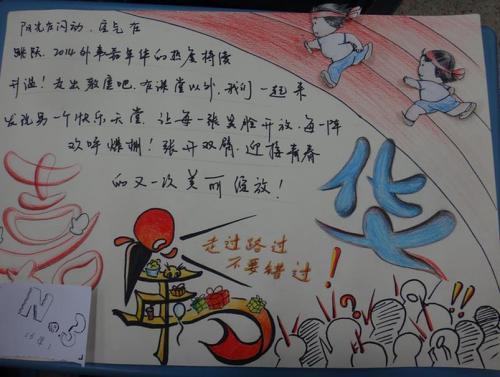 阳光在闪动，空气在
跳跃.2014嘉年华的热度持续
升温！走出教室吧.在课堂以外，我们一起来
发现另一个快乐天堂.让每一张笑脸开放.每一阵
欢呼爆棚！张开双臂.迎接青春
的又一次美丽绽放！
嘉
年
华
走过路过
不要错过！
No.3